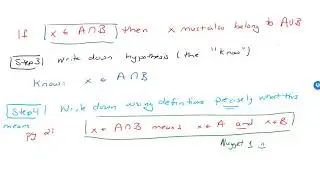 If x ∈ A∩B then x must also belong to A∪B
Step 3 Write down hypothesis (the "know")
Know: x ∈ A∩B
Step 4 Write down using definitions precisely what this
means
pg 21
x ∈ A∩B means x ∈ A and x ∈ B
Nugget 1